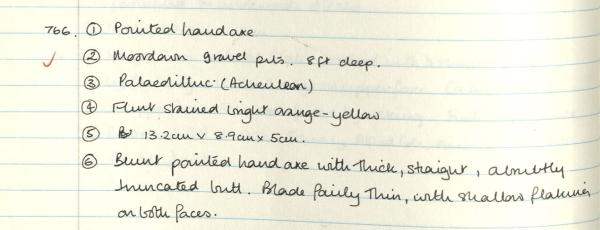 766. ① Pointed handaxe
② Moordown gravel pits. 8ft deep.
③ Palaeolithic (Acheulean)
④ Flint stained bright orange-yellow
⑤ 13.2cm x 8.9cm x 5cm.
⑥ Blunt pointed hand axe with thick, straight, abruptly
truncated butt. Blade fairly thin, with shallow flaking
on both faces.